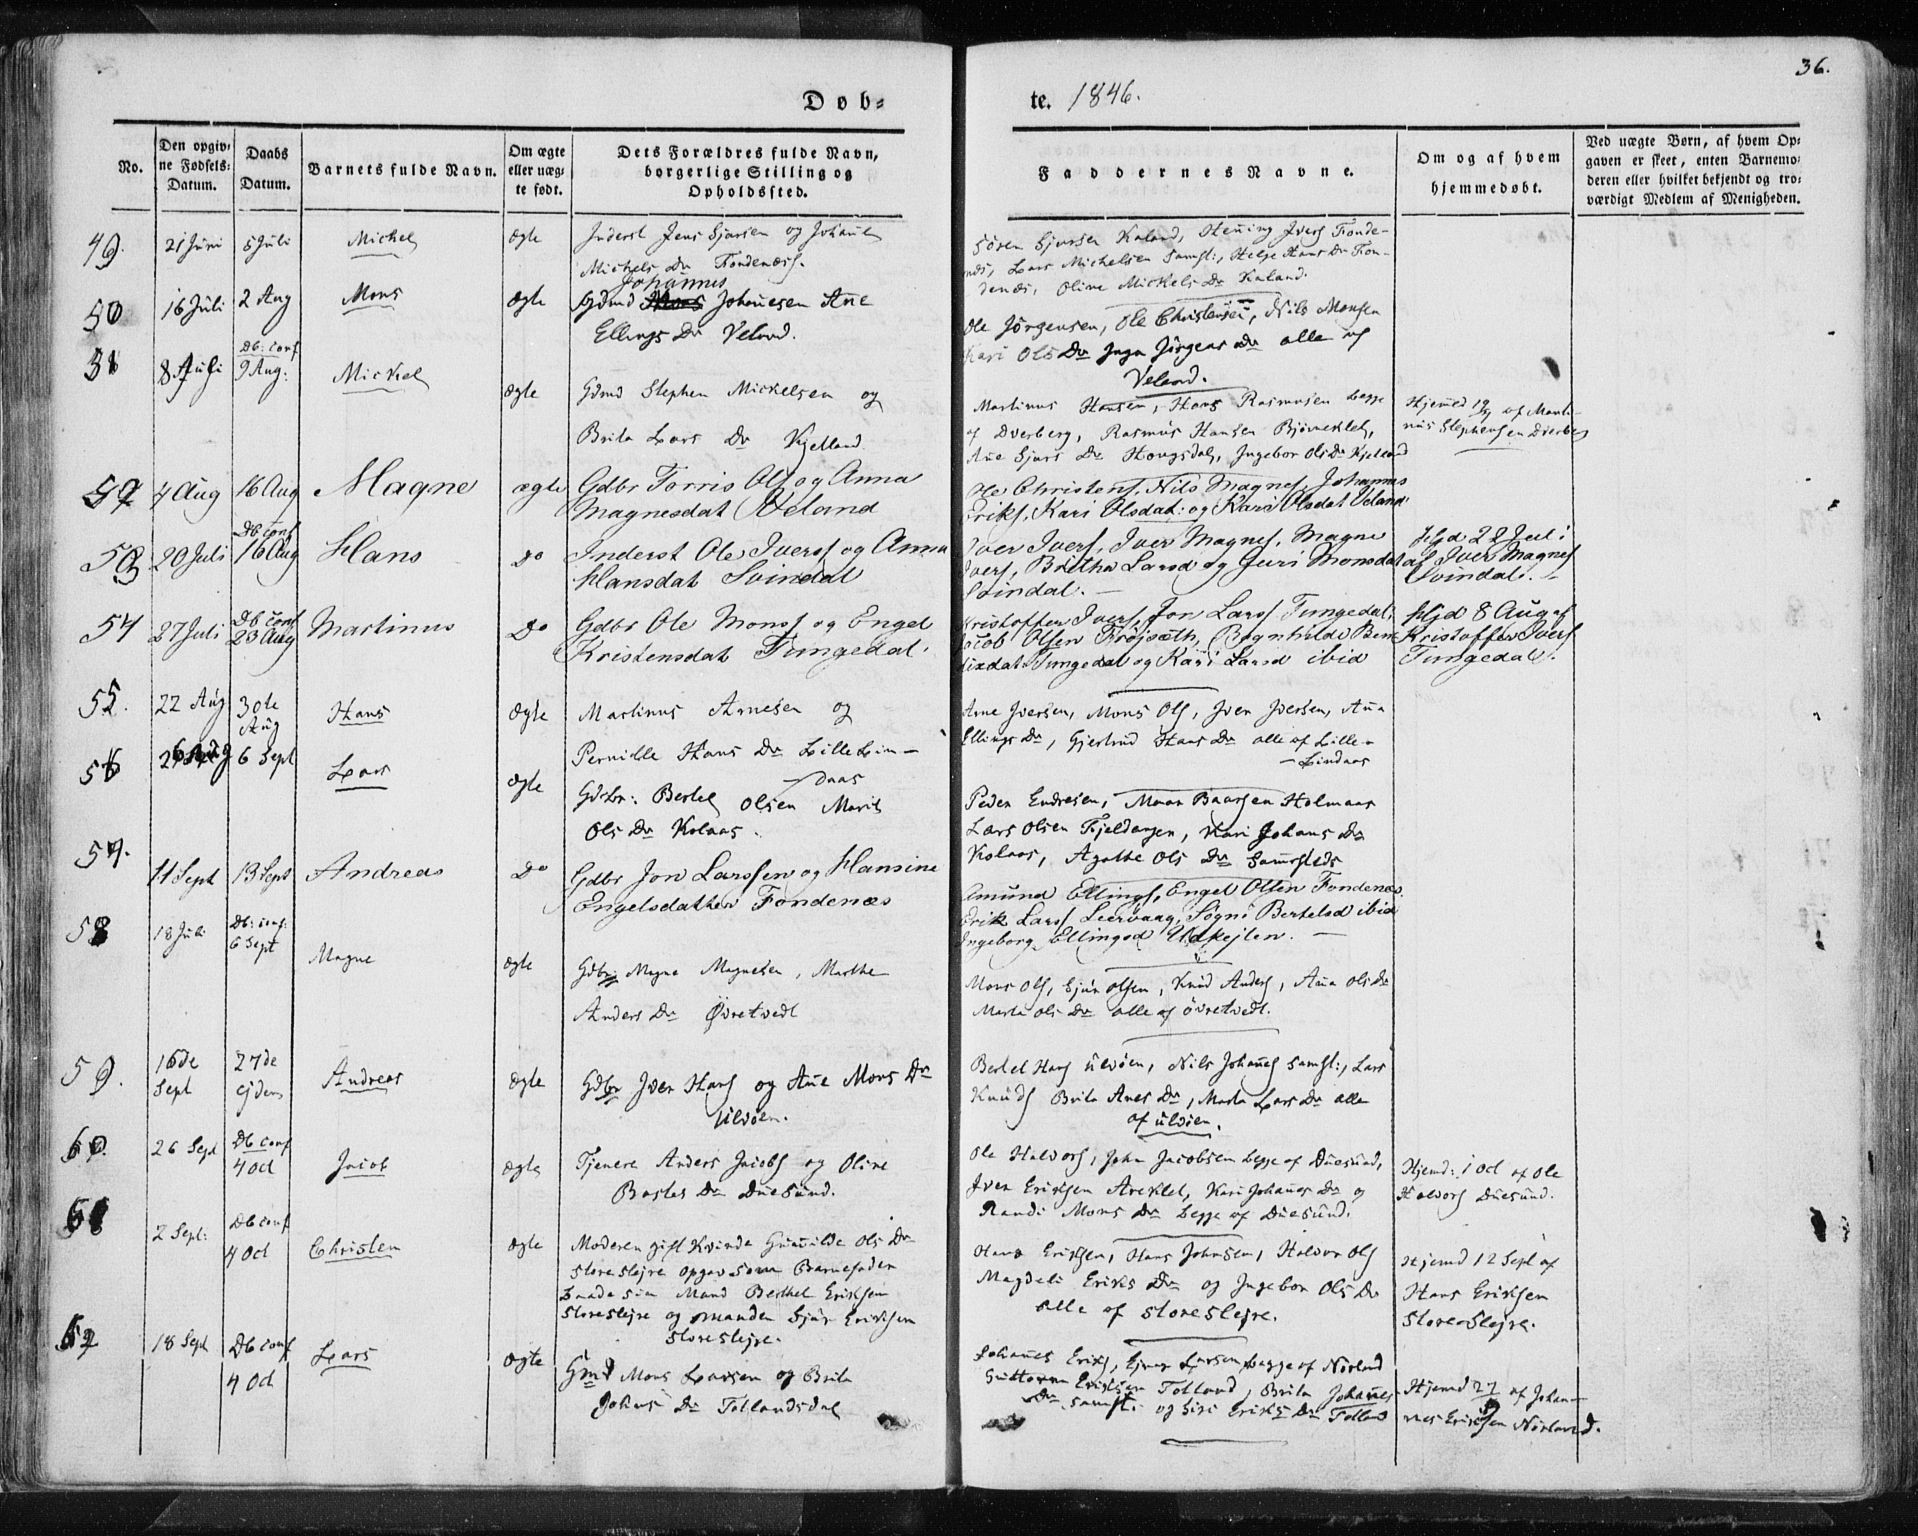 36.
Døb-
te. 1846.
No.
Den opgiv-
ne Fødsels-
Datum.
Daabs
Datum.
Barnets fulde Navn.
Om ægte
eller uæg-
te født.
Dets Forældres fulde Navn,
borgerlige Stilling og
Opholdssted.
Faddernes Navne.
Om og af hvem
hjemmedøbt.
Ved uægte Børn, af hvem Op-
gaven er skeet, enten Barnemo-
deren eller hvilket bekjendt og tro-
værdigt Medlem af Menigheden.
49.
21 Juni
5 Juli
Michel
ægte
Inderst Jens Sjursen og Johane
Michels Dr Fondenæss.
Søren Sjursen Kaland, Hening Ivers Fonde-
næs, Lars Michelsen samst:, Helje Hans Dr Fon-
denæs, Oline Mickels Dr Kaland.
50
16 Juli
2 Aug
Mons
ægte
Johannus
Gdmd Johanesen Ane
Ellings Dr Veland.
Ole Jørgensen, Ole Christensen, Nils Monsen
Kari Ols Dr Inga Jørgens Dr alle af
Veland.
51
8 Juli
Db: conf
9 Aug:
Mickel
ægte
Gdmd Stephen Mickelsen og
Brita Lars Dr Kjelland
Martinus Hansen, Hans Rasmusen begge
af Dverberg, Rasmus Hansen Bjørneklet,
Ane Sjurs Dr Hougsdal, Ingebor Ols Dr Kjelland
Hjemed 19/7 af Marti-
nus Stephensen Dverberg
52
4 Aug
16 Aug
Magne
ægte
Gdbr Torris Ols og Anna
Magnesdat Veland
Ole Christens, Nils Magnes, Johannus
Eriks, Kari Olsdat: og Kari Olsdat Veland
53
20 Juli
Db conf
16 Aug
Hans
Do
Inderst Ole Iverss og Anna
Hansdat Svindal
Iver Ivers, Iver Magnes, Magne
Ivers, Brethe Larsd og Guri Monsdat
Svindal. —
Hjd 22 Juli
af Iver Magnes
Svindal. —
54
27 Juli
Db conf
23 Aug
Martinus
Do
Gdbr Ole Monss og Engel
Kristensdat Tungedal.
Kristoffer Ivers, Jon Larss Tungedal,
Jacob Olsen Frøjsæth, Ragnhilde Ben-
dixdat Tungedal og Kari Larsd ibid
Hjd 8 Aug af
Kristoffer Ivers
Tungedal.
55.
22 Aug
30te
Aug
Hans
ægte
Martinus Arnesen og
Pernille Hans Dr Lille Lin-
-daas
Arne Iversen, Mons Ols, Iver Iversen, Ana
Ellings Dr, Gjertrud Hans Dr alle af Lille-
-Lindaas
56
6 Sept
Lars
ægte
Gdbr: Bertel Olsen Marit
Ols Dr Kolaas.
Peder Endresen, Baarsen Holmaas
Lars Olsen Fjeldanger, Kari Johans Dr
Kolaas, Agathe Ols Dr samsteds
57.
11 Sept
13 Sept
Andreas
Do
Gdbr Jon Larssen og Hansine
Engelsdatter Fondenæs
Amund Ellings, Engel Olsen Fondenæs.
Erik Larss Leervaag, Søgni Bertelsd ibid
Ingeborg Ellingsd Udkejlen. —
58
18 Juli
Db: conf:
6 Sept
Magne
ægte
Gdbr: Magne Magnesen, Marthe
Anders Dr Øvretvedt
Mons Ols, Sjur Olsen, Knud Anders, Ana Ols Dr
Marta Ols Dr alle af Øvretvedt.
59.
16de
Sept
27de
ejdem
Andreas
ægte
Gdbr Iver Hans og Ane Mons Dr
Ulvøen.
Bertel Hans Ulvøen, Nils Johanes samst:, Lars
Knuds Brita Anes Dr, Marta Lars Dr alle
af Ulvøen.
60.
26 Sept
Db conf
4 Oct
Jacob
ægte
Tjenere Anders Jacobs og Oline
Dr Duesund.
Ole Halvors, John Jacobsen begge af Duesund,
Iver Eriksen Areklet, Kari Johanes Dr og
Randi Mons Dr begge af Duesund.
Hjemd: 1 Oct af Ole
Halvors Duesund.
61
2 Sept:
Db conf
4 Oct
Christen
ægte
Moderen gift Kvinde Gunilde Ols Dr
Storeslejre opgav som Barnefader
baade sin Mand Berthel Eriksen
Storeslejre og manden Sjur Eriksen
Storeslejre.
Hans Eriksen, Hans Johnsen, Halvor Ols
Magdeli Eriks Dr og Ingebor Ols Dr
alle af Storeslejre.
Hjemd 12 Sept af
Hans Eriksen
Store-Slejre.
62
18 Sept
Db conf
4 Oct
Lars
ægte
Gmd Mons Larsen og Brita
Johns Dr Totlandsdal
Johanes Eriks, Ejnar Larsen begge af Nørland
Guttorm Eriksen Totland, Brita Johanes
Dr samst: og Siri Eriks Dr Totland
Hjemd 27/9 af Johan-
nes Eriksen Nørland.